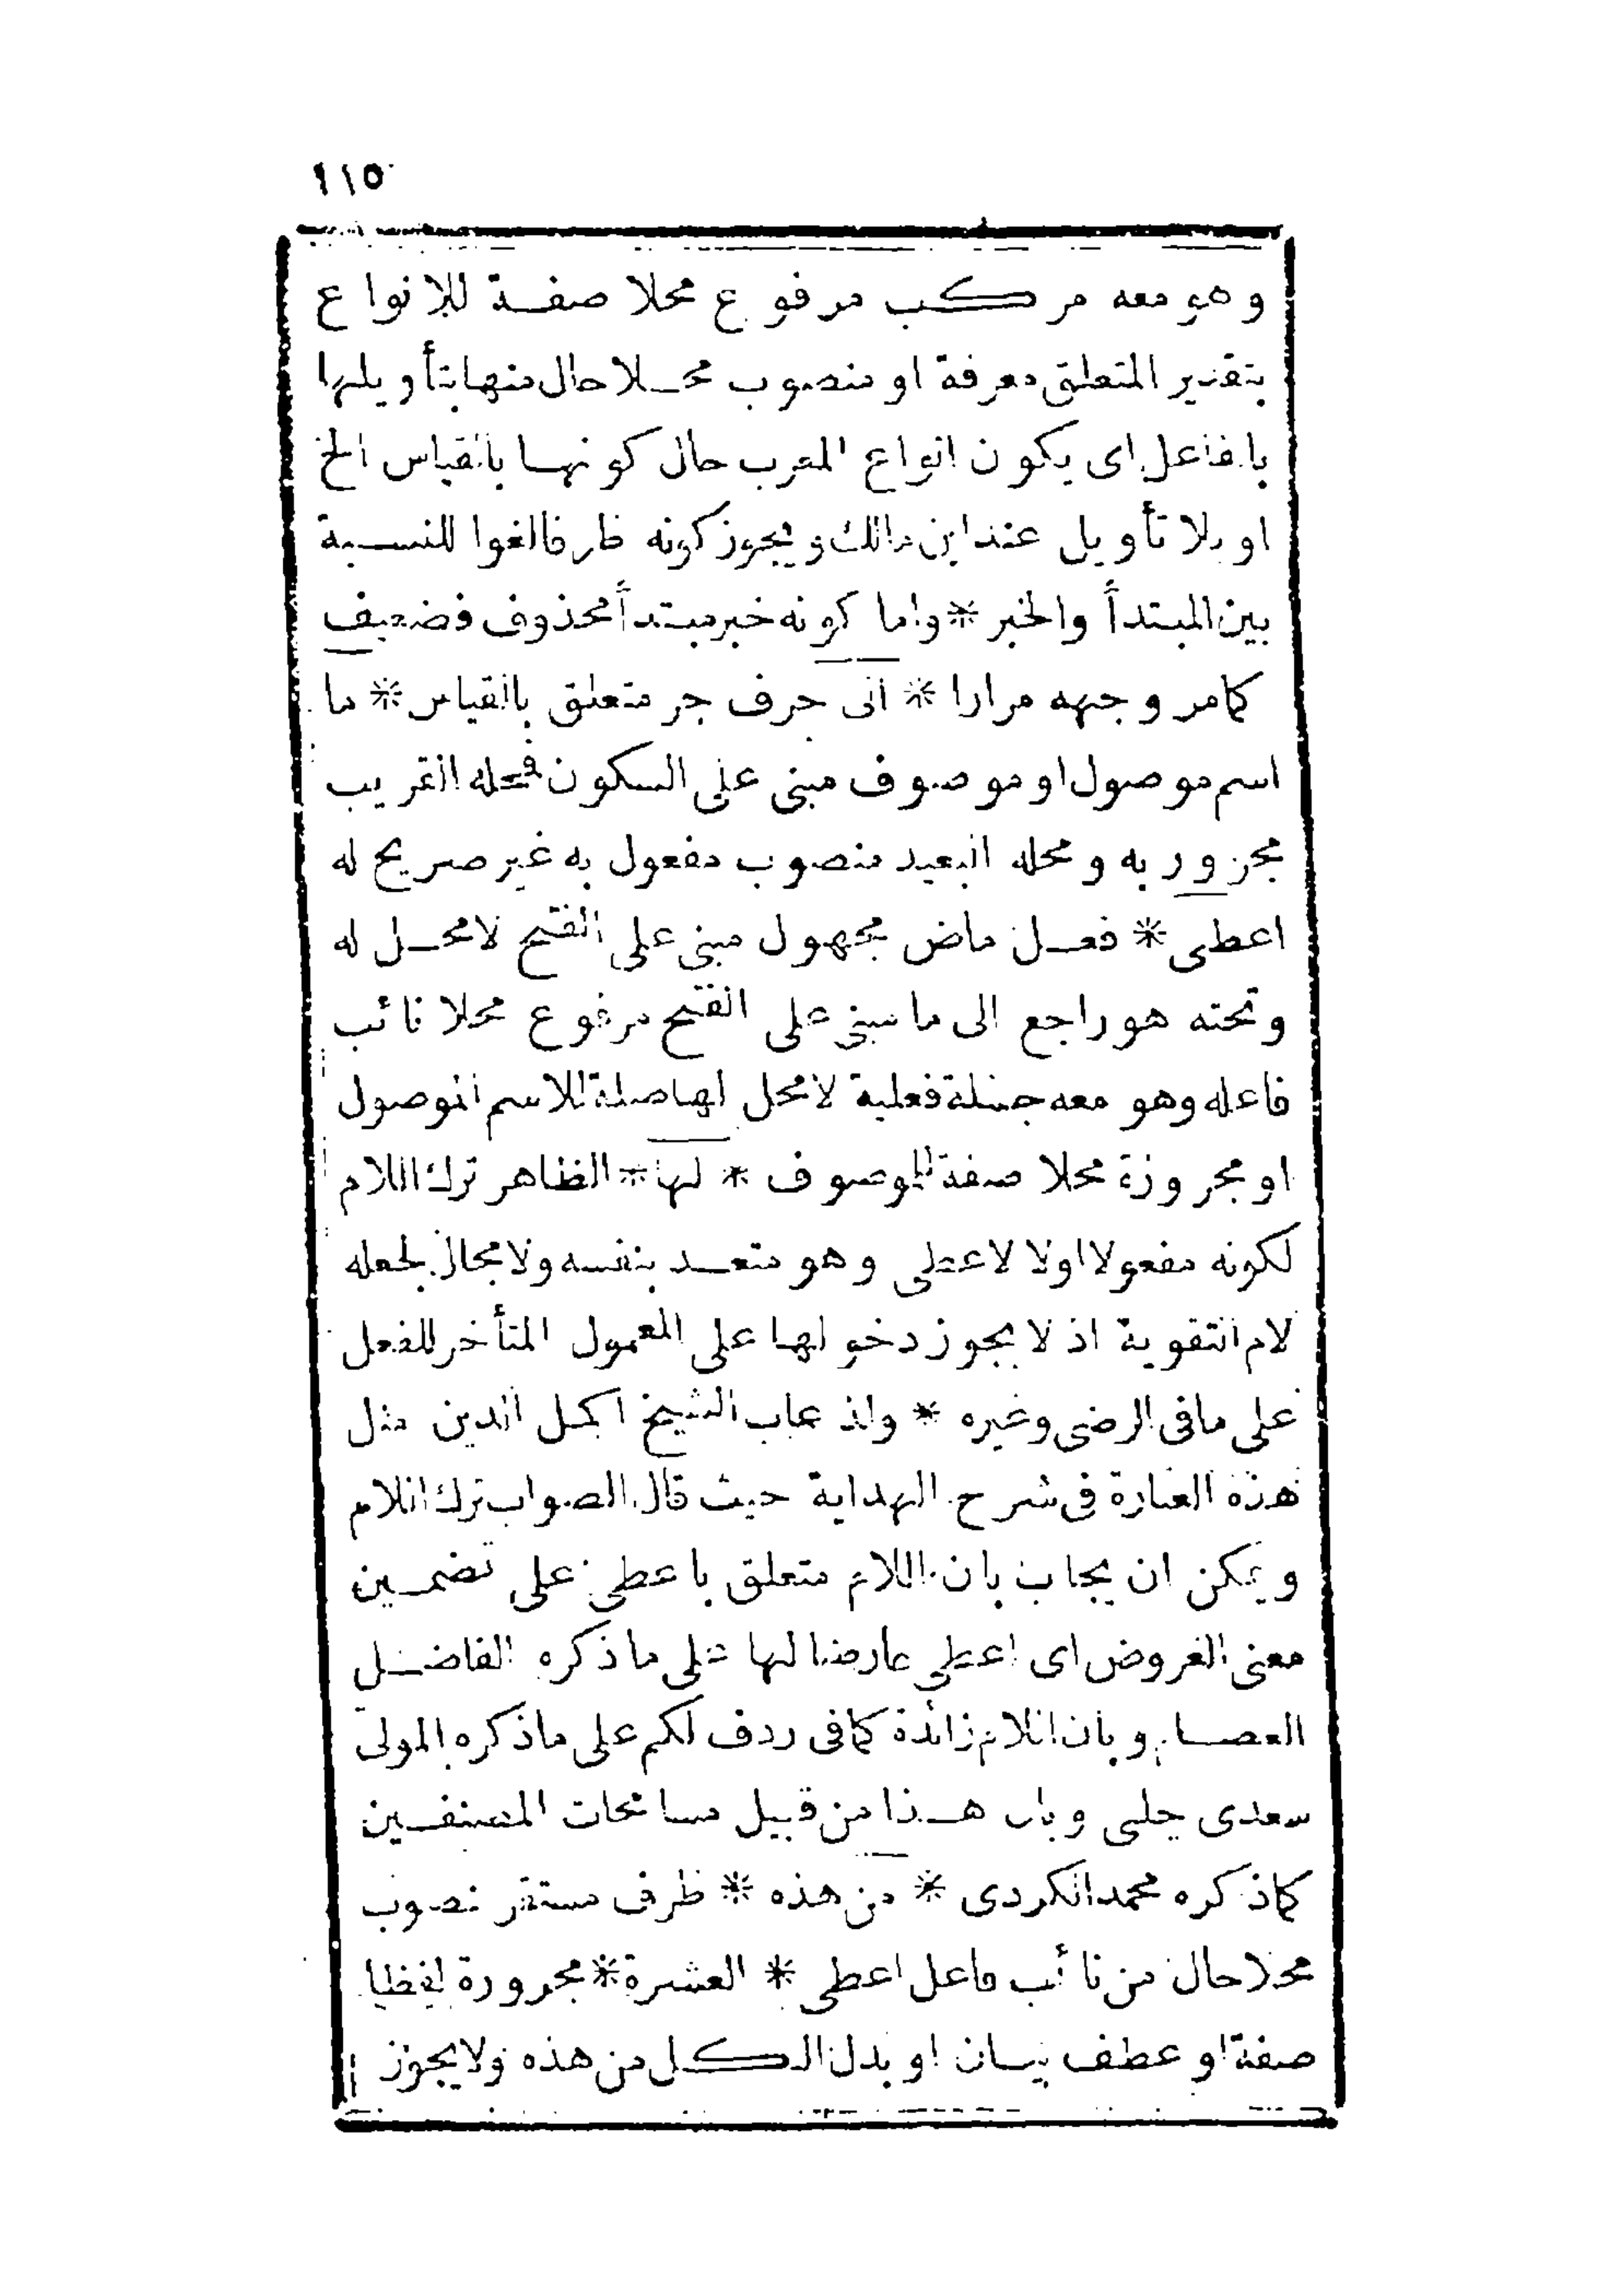 ١١٥
وهو معه مركب مرفوع محلا صفة للانواع
بتقدير المتعلق معرفة او منصوب محلا حال منها بتأويلها
بالفاعل اى يكون انواع المعرب حال كونها بالقياس الخ
او بلا تأويل عند ابن مالك ويجوز كونه ظرفا لغوا للنسبة
بين المبتدأ والخبر * واما كونه خبر مبتدأ محذوف فضعيف
كما مر وجهه مرارا * الى حرف جر متعلق بالقياس * ما
اسم موصول او موصوف مبنى على السكون فمحله القريب
مجرور به ومحله البعيد منصوب مفعول به غير صريح له
اعطى * فعل ماض مجهول مبنى على الفتح لا محل له
وتحته هو راجع الى ما مبنى على الفتح مرفوع محلا نائب
فاعله وهو معه جملة فعلية لا محل لها صلة للاسم الموصول
او مجرورة محلا صفة للموصوف * لها * الظاهر ترك اللام
لكونه مفعولا اولا لاعطى وهو متعد بنفسه ولا مجال لجعله
لام التقوية اذ لا يجوز دخولها على المعمول المتأخر للفعل
على ما فى الرضى وغيره * ولذ عاب الشيخ اكمل الدين مثل
هذه العبارة فى شرح الهداية حيث قال الصواب ترك اللام
ويمكن ان يجاب بان اللام متعلق باعطى على تضمين
معنى العروض اى اعطى عارضا لها على ما ذكره الفاضل
العصام وبأن اللام زائدة كما فى ردف لكم على ما ذكره المولى
سعدى چلبى وبان هذا من قبيل مسامحات المصنفين
كما ذكره محمد الكردى * من هذه * ظرف مستقر نصوب
محلا حال من نائب فاعل اعطى * العشرة * مجرورة لفظا
صفة او عطف بيان او بدل الكل من هذه ولا يجوز